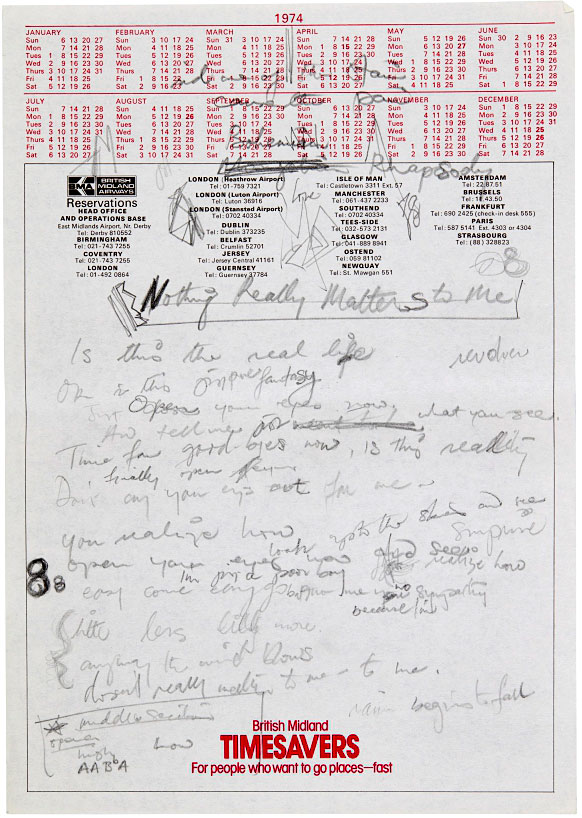 1974
JANUARY
Sun 6 13 20 27
Mon 7 14 21 28
Tues 1 8 15 22 29
Wed 2 9 16 23 30
Thurs 3 10 17 24 31
Fri 4 11 18 25
Sat 5 12 19 26
FEBRUARY
Sun 3 10 17 24
Mon 4 11 18 25
Tues 5 12 19 26
Wed 6 13 20 27
Thurs 7 14 21 28
Fri 1 8 15 22
Sat 2 9 16 23
MARCH
Sun 31 3 10 17 24
Mon 4 11 18 25
Tues 5 12 19 26
Wed 6 13 20 27
Thurs 7 14 21 28
Fri 1 8 15 22 29
Sat 2 9 16 23 30
APRIL
Sun 7 14 21 28
Mon 1 8 15 22 29
Tues 2 9 16 23 30
Wed 3 10 17 24
Thurs 4 11 18 25
Fri 5 12 19 26
Sat 6 13 20 27
MAY
Sun 5 12 19 26
Mon 6 13 20 27
Tues 7 14 21 28
Wed 1 8 15 22 29
Thurs 2 9 16 23 30
Fri 3 10 17 24 31
Sat 4 11 18 25
JUNE
Sun 30 2 9 16 23
Mon 3 10 17 24
Tues 4 11 18 25
Wed 5 12 19 26
Thurs 6 13 20 27
Fri 7 14 21 28
Sat 1 8 15 22 29
JULY
Sun 7 14 21 28
Mon 1 8 15 22 29
Tues 2 9 16 23 30
Wed 3 10 17 24 31
Thurs 4 11 18 25
Fri 5 12 19 26
Sat 6 13 20 27
AUGUST
Sun 4 11 18 25
Mon 5 12 19 26
Tues 6 13 20 27
Wed 7 14 21 28
Thurs 1 8 15 22 29
Fri 2 9 16 23 30
Sat 3 10 17 24 31
SEPTEMBER
Sun 1 8 15 22 29
Mon 2 9 16 23 30
OCTOBER
Sun 6 13 20 27
NOVEMBER
DECEMBER
Sun 1 8 15 22 29
Mon 2 9 16 23 30
Tues 3 10 17 24 31
Wed 4 11 18 25
Thurs 5 12 19 26
Fri 6 13 20 27
Sat 7 14 21 28
Rhapsody
BMA BRITISH MIDLAND AIRWAYS
Reservations
HEAD OFFICE
AND OPERATIONS BASE
East Midlands Airport, Nr. Derby
Tel: Derby 810552
BIRMINGHAM
Tel: 021-743 7255
COVENTRY
Tel: 021-743 7255
LONDON
Tel: 01-492 0864
LONDON (Heathrow Airport)
Tel: 01-759 7321
LONDON (Luton Airport)
Tel: Luton 36916
LONDON (Stansted Airport)
Tel: 0702 40334
DUBLIN
Tel: Dublin 373235
BELFAST
Tel: Crumlin 52701
JERSEY
Tel: Jersey Central 41161
GUERNSEY
Tel: Guernsey 37784
ISLE OF MAN
Tel: Castletown 3311 Ext. 57
MANCHESTER
Tel: 061-437 2233
SOUTHEND
Tel: 0702 40334
TEES-SIDE
Tel: 032-573 2131
GLASGOW
Tel: 041-889 8941
OSTEND
Tel: 059 81102
NEWQUAY
Tel: St. Mawgan 551
AMSTERDAM
Tel: 22.87.51
BRUSSELS
Tel: 18.43.50
FRANKFURT
Tel: 690 2425 (check-in desk 555)
PARIS
Tel: 587 5141 Ext. 4303 or 4304
STRASBOURG
Tel: (88) 328823
88
Nothing Really Matters to Me
Is this the real life
revolver
Or is this just fantasy
Just Open your eyes now
what you see
And tell me
Time for good-byes now, is this reality
finally open
Don't cry your eyes out for me
you realize how
look up to the skies and see
open your eyes now
Simpire
realize how
I'm just a poor boy
easy come easy go
no sympathy
because I'm
88
little less little more
anyway the wind blows
doesn't really matter to me - to me.
rain begins to fall
middle section
opener
now
AABbA
British Midland
TIMESAVERS
For people who want to go places—fast